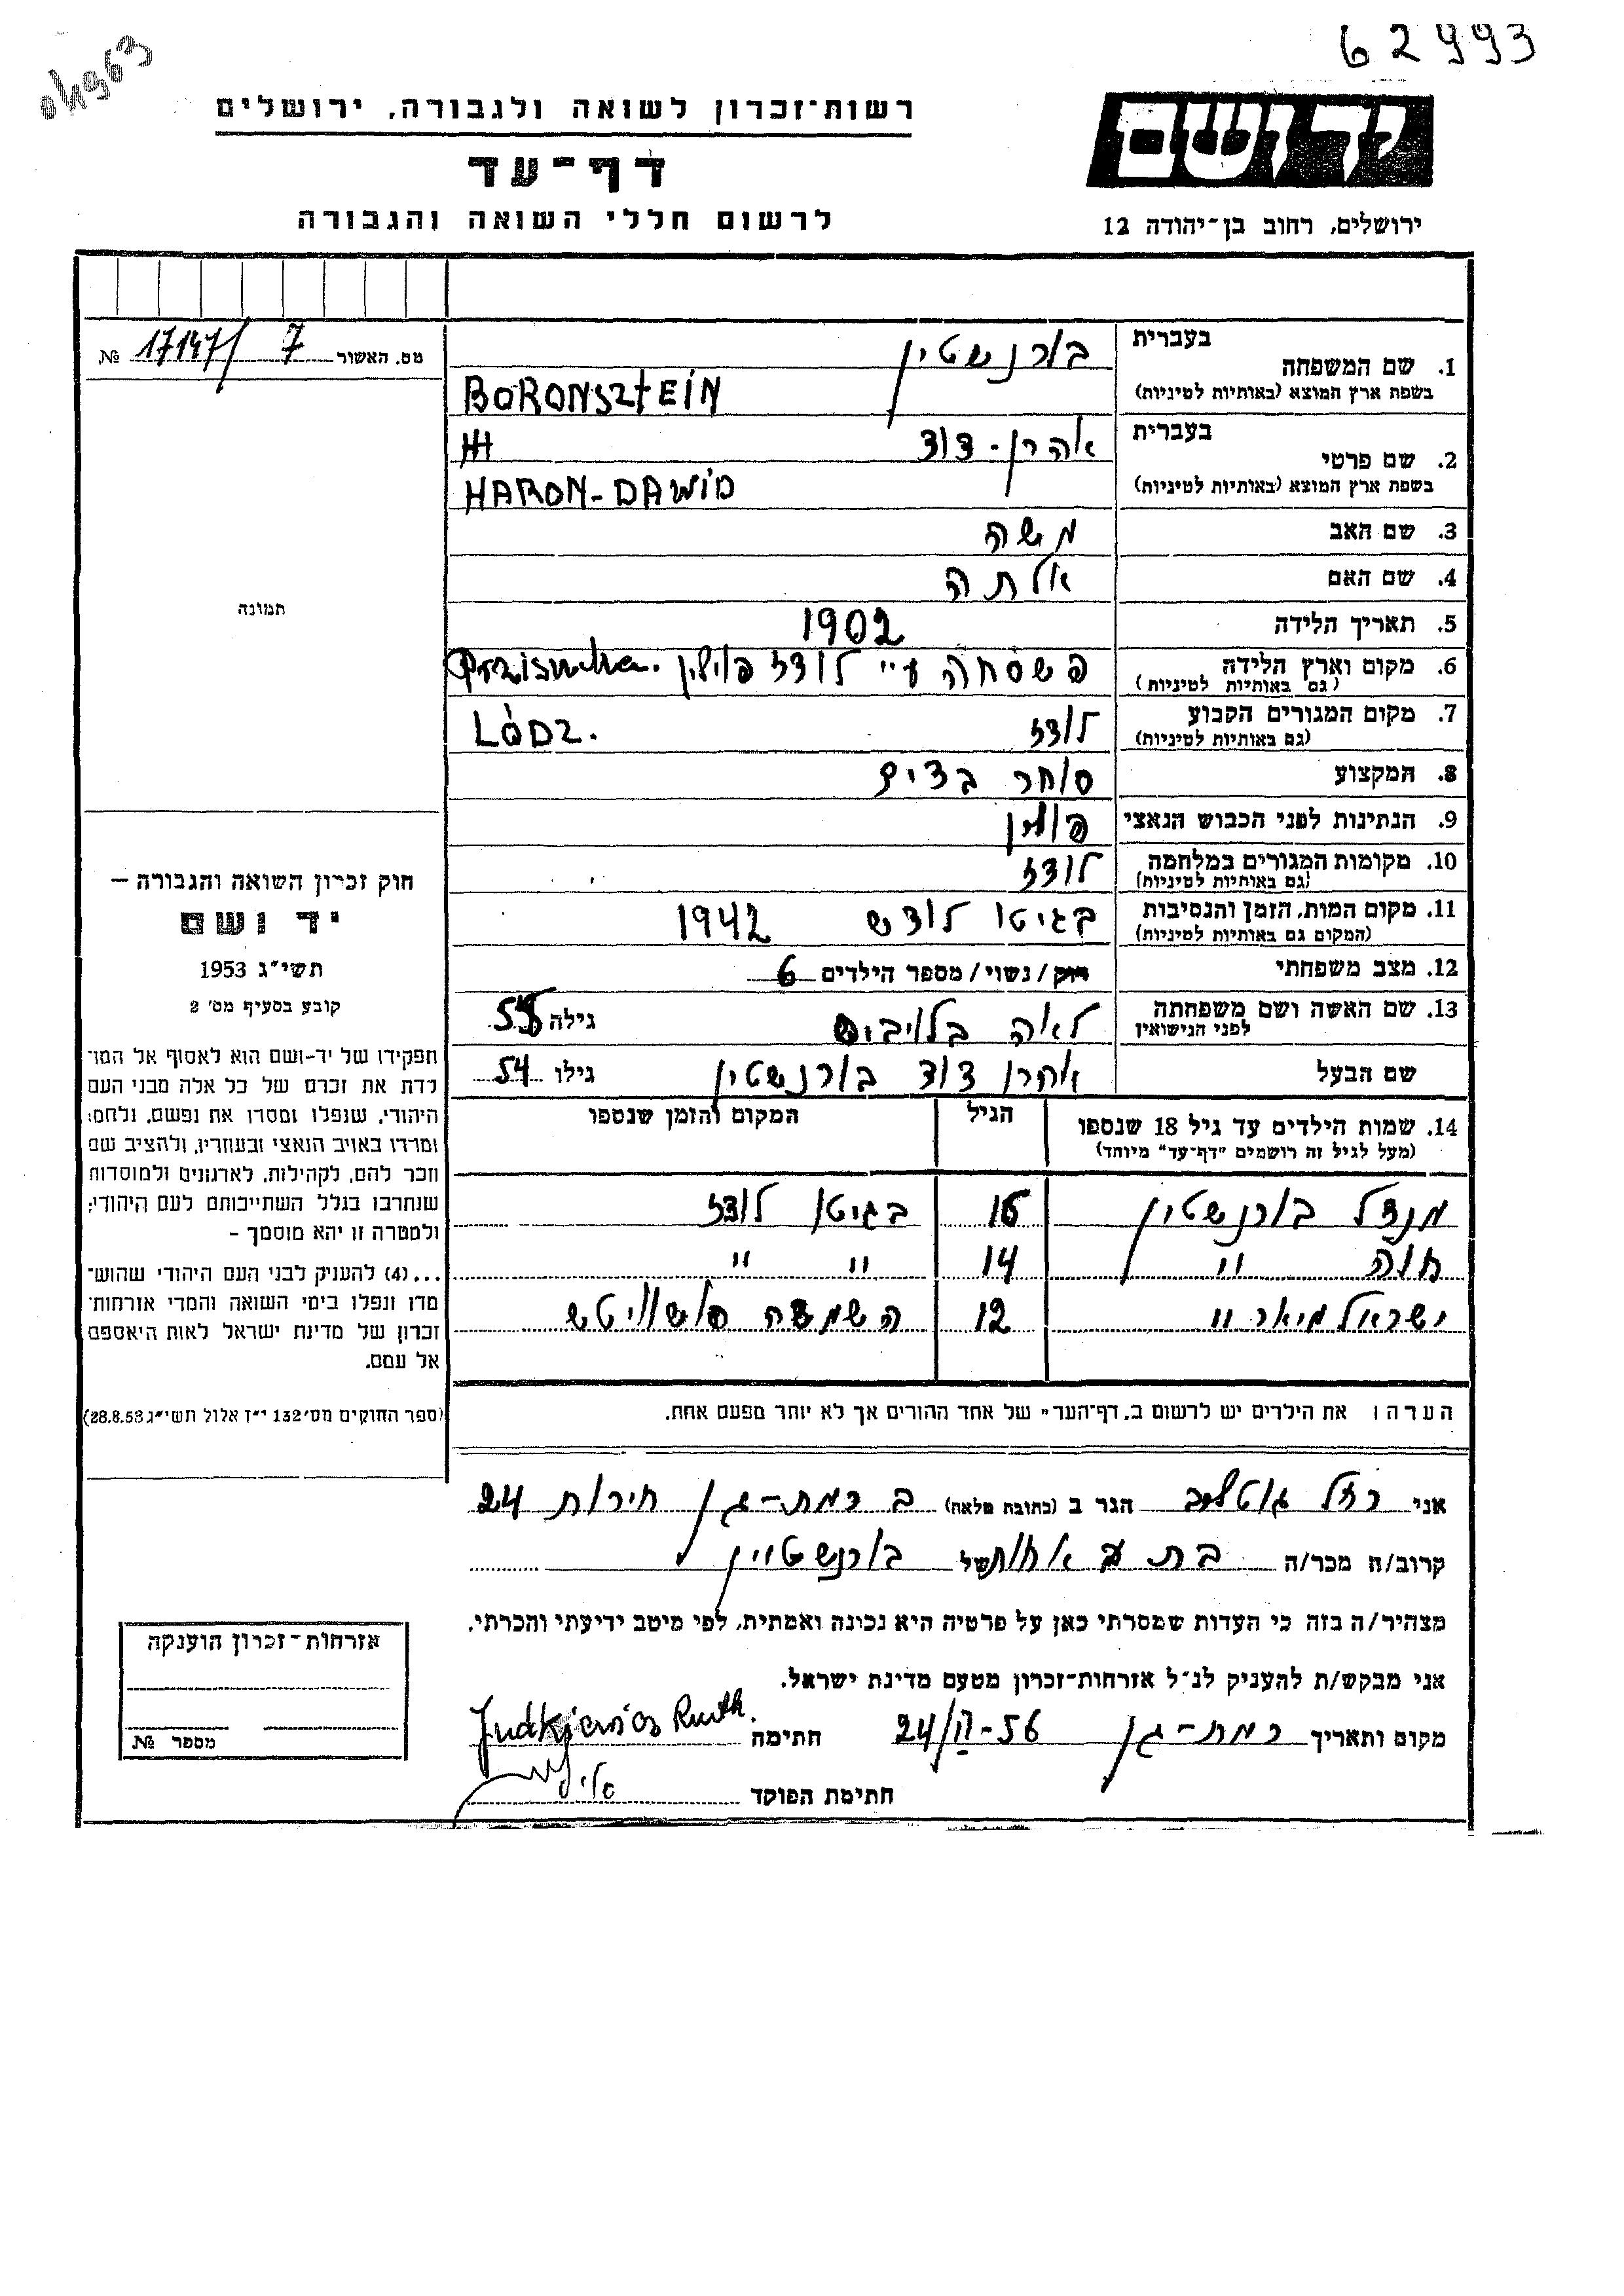 62993
04963
יד ושם
ירושלים, רחוב בן־יהודה 12
רשות־זכרון לשואה ולגבורה, ירושלים
דף־עד
לרשום חללי השואה והגבורה
מס. האשור 7 /17147 №
1. שם המשפחה
בעברית בורנשטין
בשפת ארץ המוצא (באותיות לטיניות) BORONSZTEIN
2. שם פרטי
בעברית אהרן - דוד
בשפת ארץ המוצא (באותיות לטיניות) HARON-DAWID
3. שם האב משה
4. שם האם אלתה
5. תאריך הלידה 1902
6. מקום וארץ הלידה פשסחה ע"י לודז פוילין Przisucha.
(גם באותיות לטיניות)
7. מקום המגורים הקבוע לודז LÒDZ.
(גם באותיות לטיניות)
8. המקצוע סוחר בדים
9. הנתינות לפני הכבוש הנאצי פולין
10. מקומות המגורים במלחמה לודז
(גם באותיות לטיניות)
11. מקום המות, הזמן והנסיבות בגיטו לודש 1942
(המקום גם באותיות לטיניות)
12. מצב משפחתי רוק/נשוי/מספר הילדים 6
13. שם האשה ושם משפחתה לאה גילה
לפני הנישואין
שם הבעל אהרן דוד בורנשטין גילו 54
14. שמות הילדים עד גיל 18 שנספו הגיל המקום והזמן שנספו
(מעל לגיל זה רושמים "דף־עד" מיוחד)
מנדל בורנשטין 16 בגיטו לודז
חוה " 14 " " "
ישראל מיאר " 12 השמדה
הערה: את הילדים יש לרשום ב„דף־העד" של אחד ההורים אך לא יותר מפעם אחת.
אני רחל הגר ב (כתובת מלאה) ב רמת-גן חירות 24
קרוב/ה מכר/ה בת אחות של בורנשטיין
מצהיר/ה בזה כי העדות שמסרתי כאן על פרטיה היא נכונה ואמתית, לפי מיטב ידיעתי והכרתי.
אני מבקש/ת להעניק לנ"ל אזרחות־זכרון מטעם מדינת ישראל.
מקום ותאריך רמת-גן 24/II-56 חתימה Judkiewicz Ruth.
חתימת הפוקד
תמונה
חוק זכרון השואה והגבורה —
יד ושם
תשי"ג 1953
קובע בסעיף מס' 2
תפקידו של יד-ושם הוא לאסוף אל המו־
לדת את זכרם של כל אלה מבני העם
היהודי, שנפלו ומסרו את נפשם, נלחמו
ומרדו באויב הנאצי ובעוזריו, ולהציב שם
וזכר להם, לקהילות, לארגונים ולמוסדות
שנחרבו בגלל השתייכותם לעם היהודי;
ולמטרה זו יהא מוסמך -
...(4) להעניק לבני העם היהודי שהוש־
מדו ונפלו בימי השואה והמרי אזרחות־
זכרון של מדינת ישראל לאות היאספם
אל עמם.
(ספר החוקים מס' 132 י"ז אלול תשי"ג 28.8.53)
אזרחות־זכרון הוענקה
מספר №